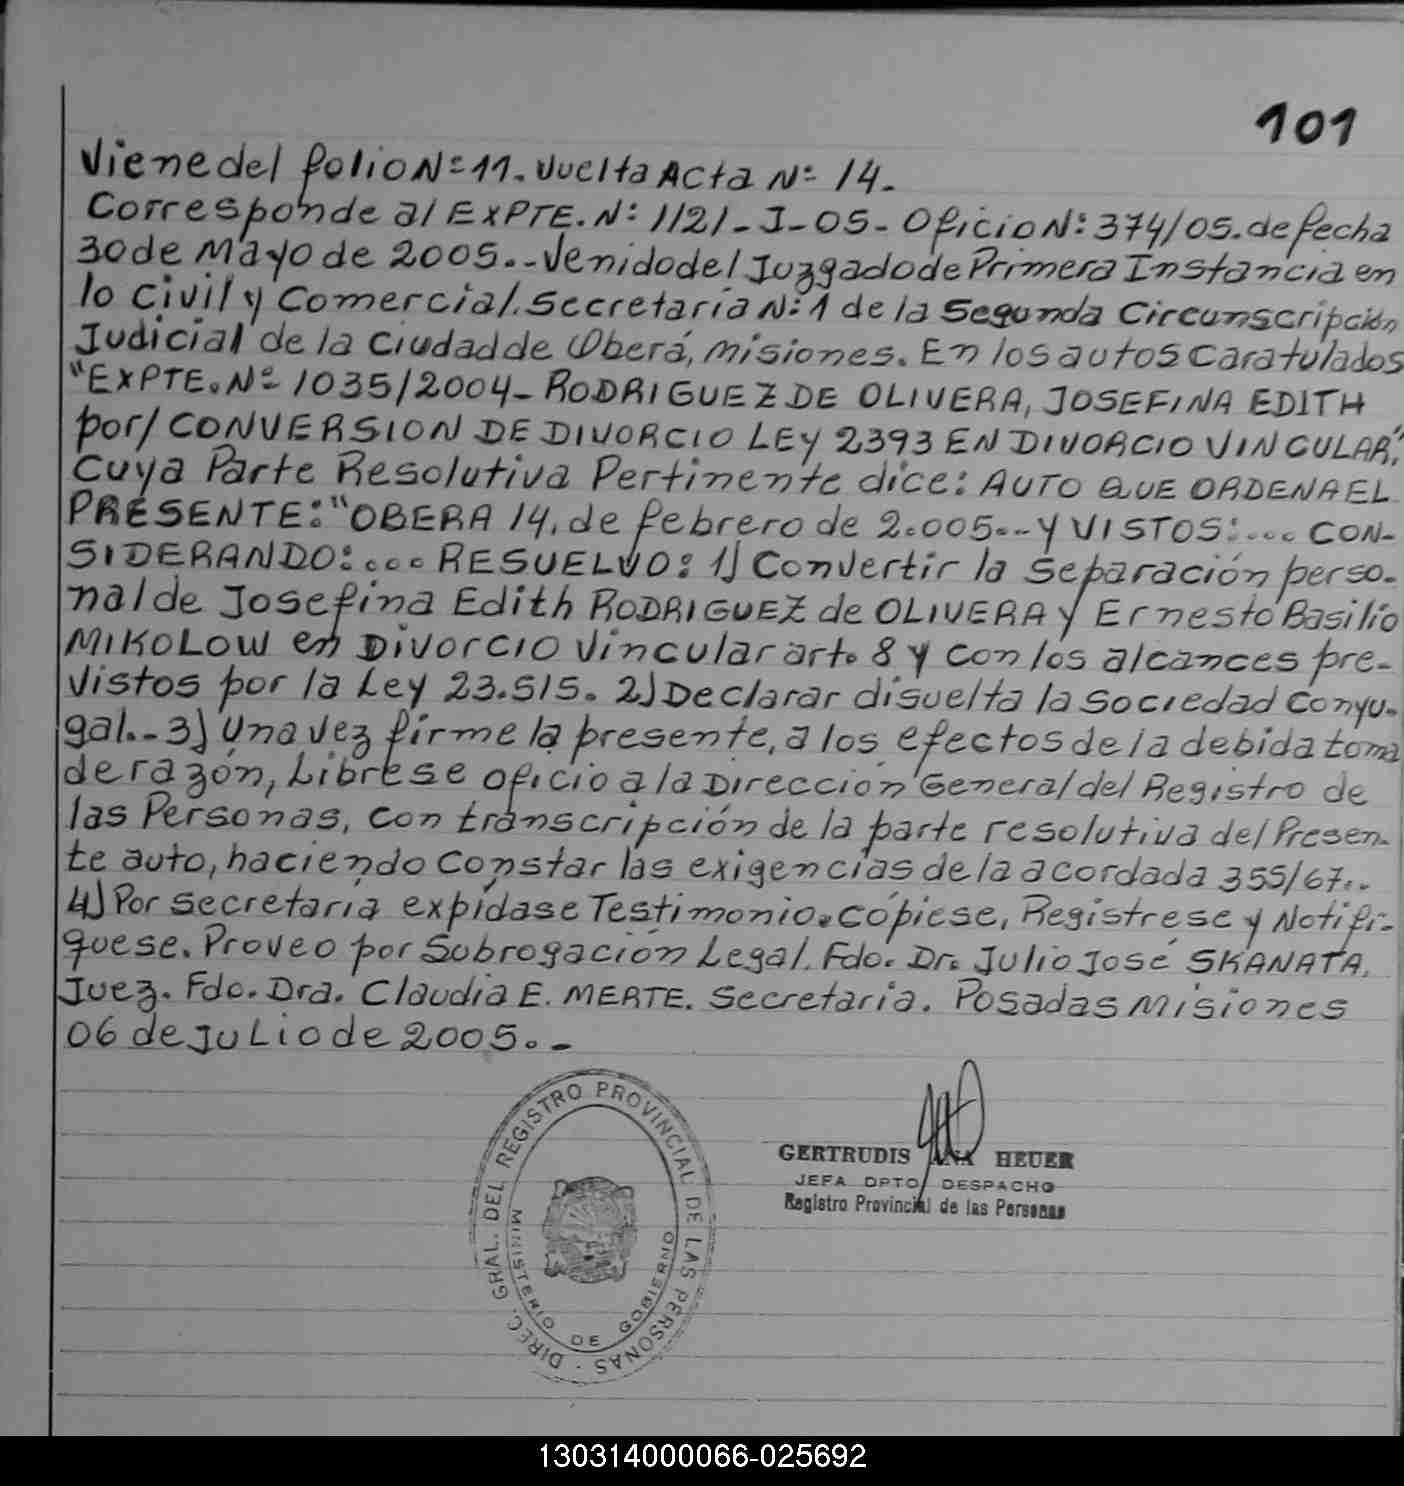 101
Viene del folio Nº 11. Vuelta Acta Nº 14.
Corresponde al EXPTE. Nº: 1121-J-05- Oficio Nº: 374/05. de fecha
30 de Mayo de 2005..- Venido del Juzgado de Primera Instancia en
lo Civil y Comercial. Secretaría Nº: 1 de la Segunda Circunscripción
Judicial de la Ciudad de Oberá, Misiones. En los autos Caratulados
"EXPTE. Nº 1035/2004- RODRIGUEZ DE OLIVERA, JOSEFINA EDITH
por/ CONVERSION DE DIVORCIO LEY 2393 EN DIVORCIO VINCULAR",
Cuya Parte Resolutiva Pertinente dice: AUTO QUE ORDENA EL
PRESENTE: "OBERA 14, de febrero de 2.005..- Y VISTOS:... CON-
SIDERANDO:... RESUELVO: 1) Convertir la Separación perso-
nal de Josefina Edith RODRIGUEZ de OLIVERA y Ernesto Basilio
MIKOLOW en Divorcio Vincular art. 8 y con los alcances pre-
vistos por la Ley 23.515. 2) Declarar disuelta la Sociedad Conyu-
gal.- 3) Una vez firme la presente, a los efectos de la debida toma
de razón, Líbrese oficio a la Dirección General del Registro de
las Personas, con transcripción de la parte resolutiva del Presen-
te auto, haciendo Constar las exigencias de la acordada 355/67..-
4) Por Secretaría expídase Testimonio. Cópiese, Regístrese y Notifí-
quese. Proveo por Subrogación Legal. Fdo. Dr. Julio José SKANATA.
Juez. Fdo. Dra. Claudia E. MERTE. Secretaria. Posadas Misiones
06 de Julio de 2005.-
DIREC. GRAL. DEL REGISTRO PROVINCIAL DE LAS PERSONAS ·
MINISTERIO DE GOBIERNO
GERTRUDIS ANA HEUER
JEFA DPTO DESPACHO
Registro Provincial de las Personas
130314000066-025692